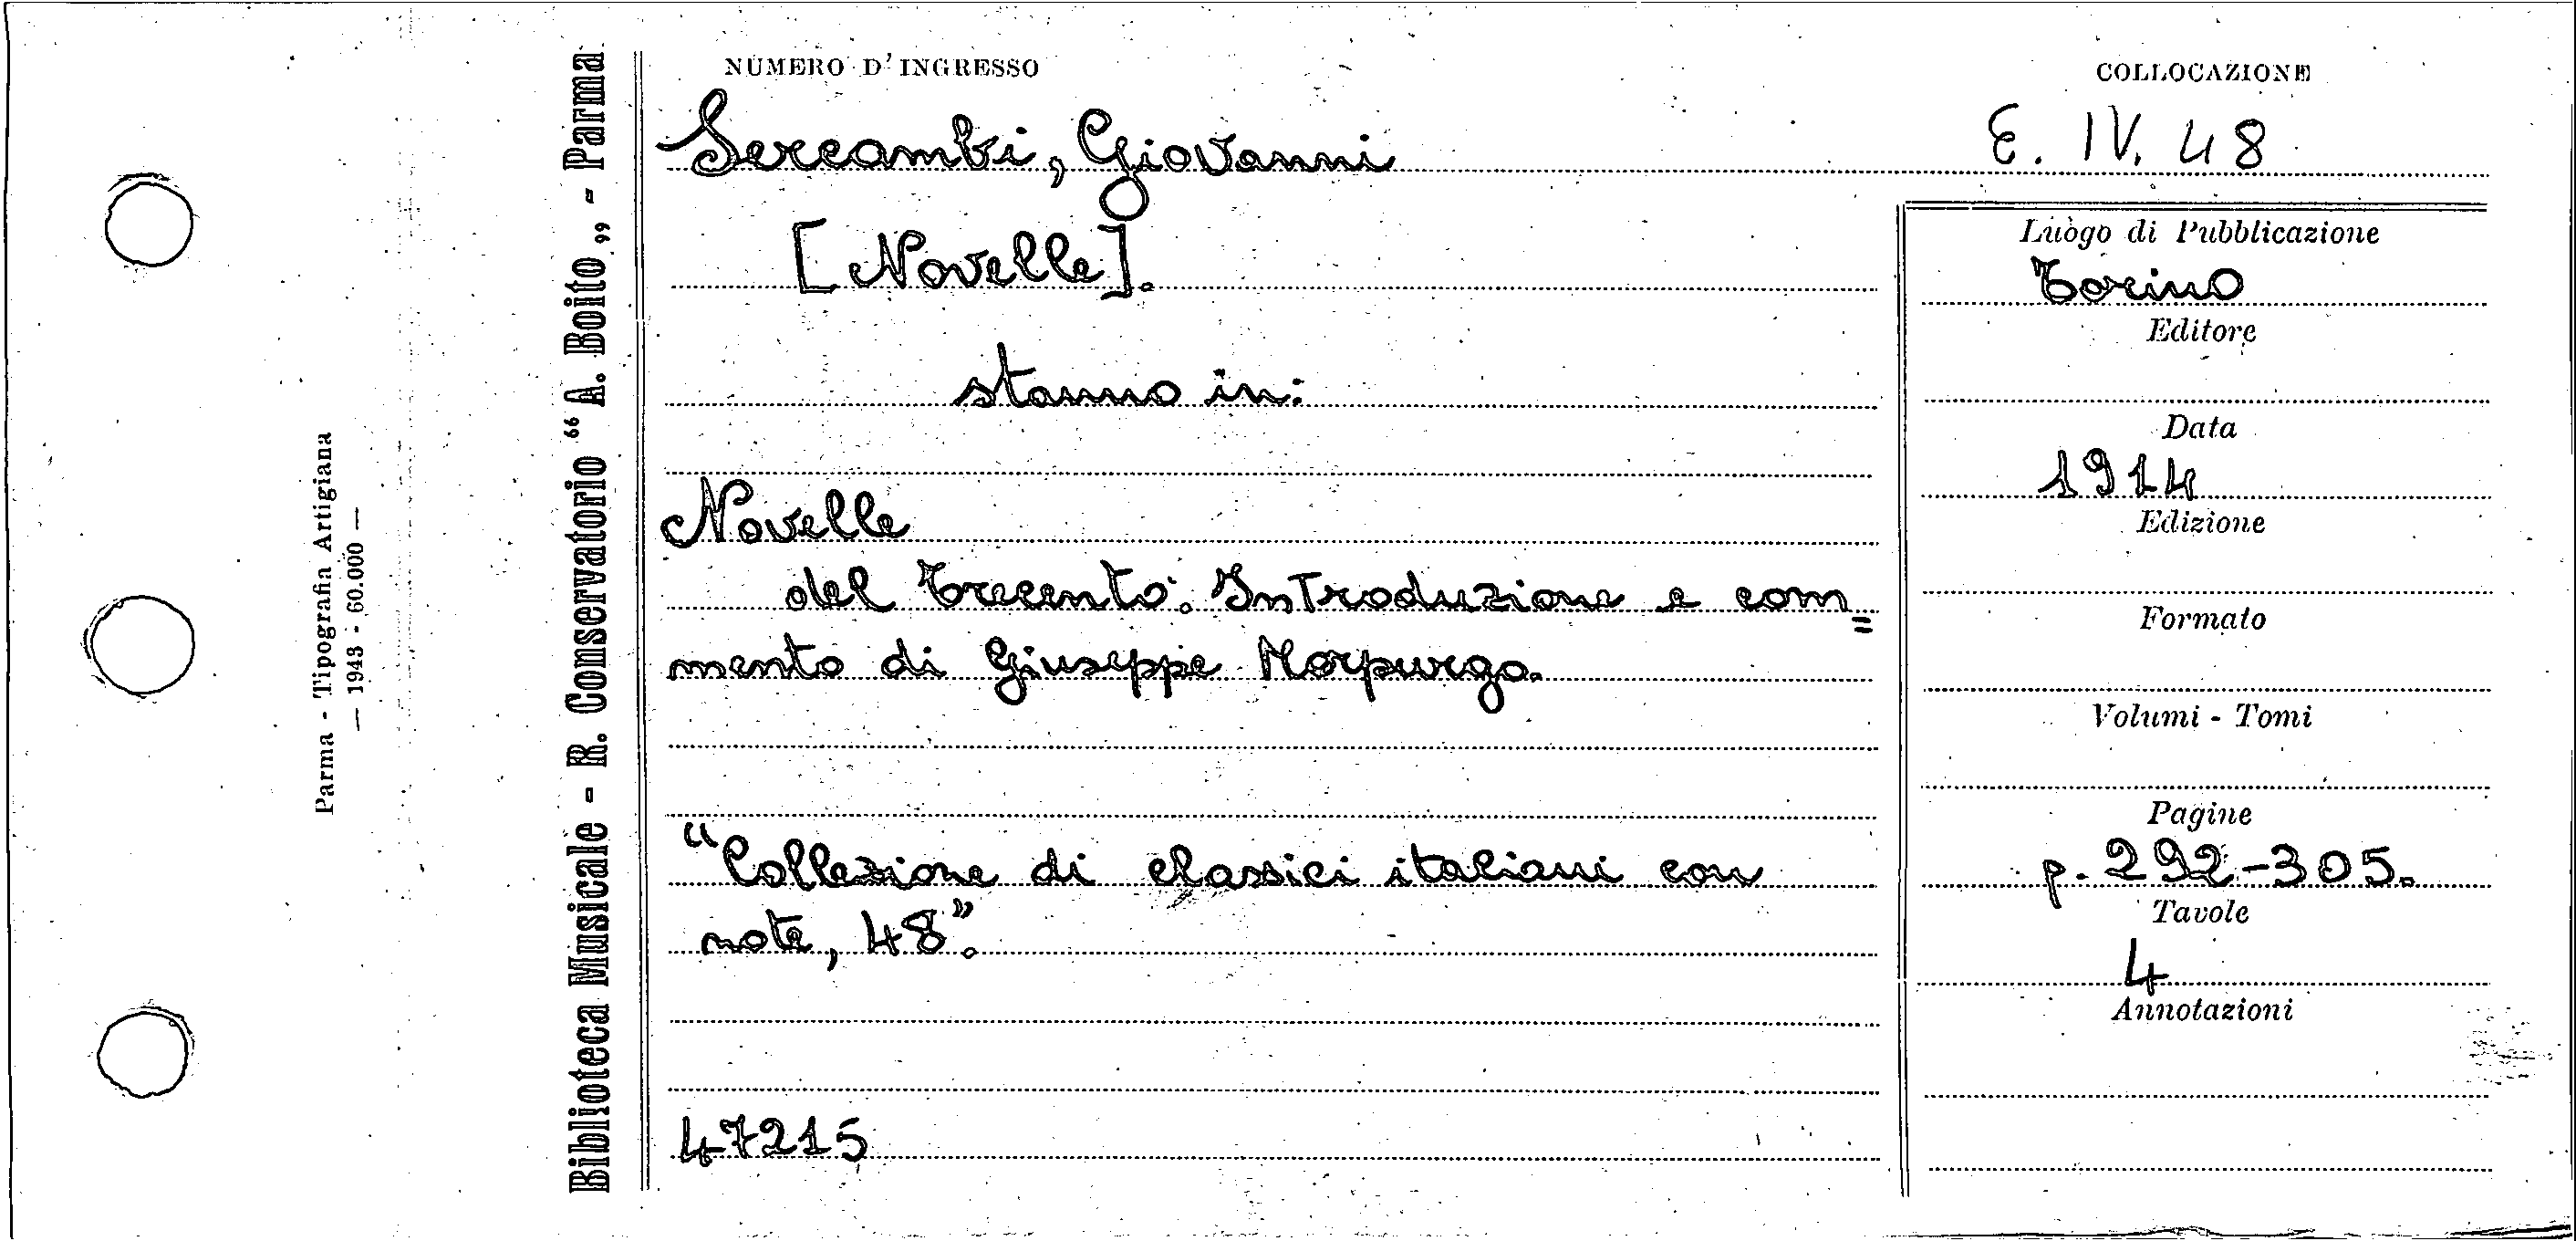 Parma - Tipografia Artigiana
— 1943 - 60.000 —
Biblioteca Musicale - R. Conservatorio “A. Boito„ - Parma
NUMERO D'INGRESSO
COLLOCAZIONE
Sercambi, Giovanni
E. IV. 48
[Novelle].
stanno in:
Novelle
del Trecento. Introduzione e com=
mento di Giuseppe Morpurgo.
“Collezione di classici italiani con
note, 48”.
47215
Luogo di Pubblicazione
Torino
Editore
Data
1914
Edizione
Formato
Volumi - Tomi
Pagine
p. 292-305.
Tavole
4
Annotazioni